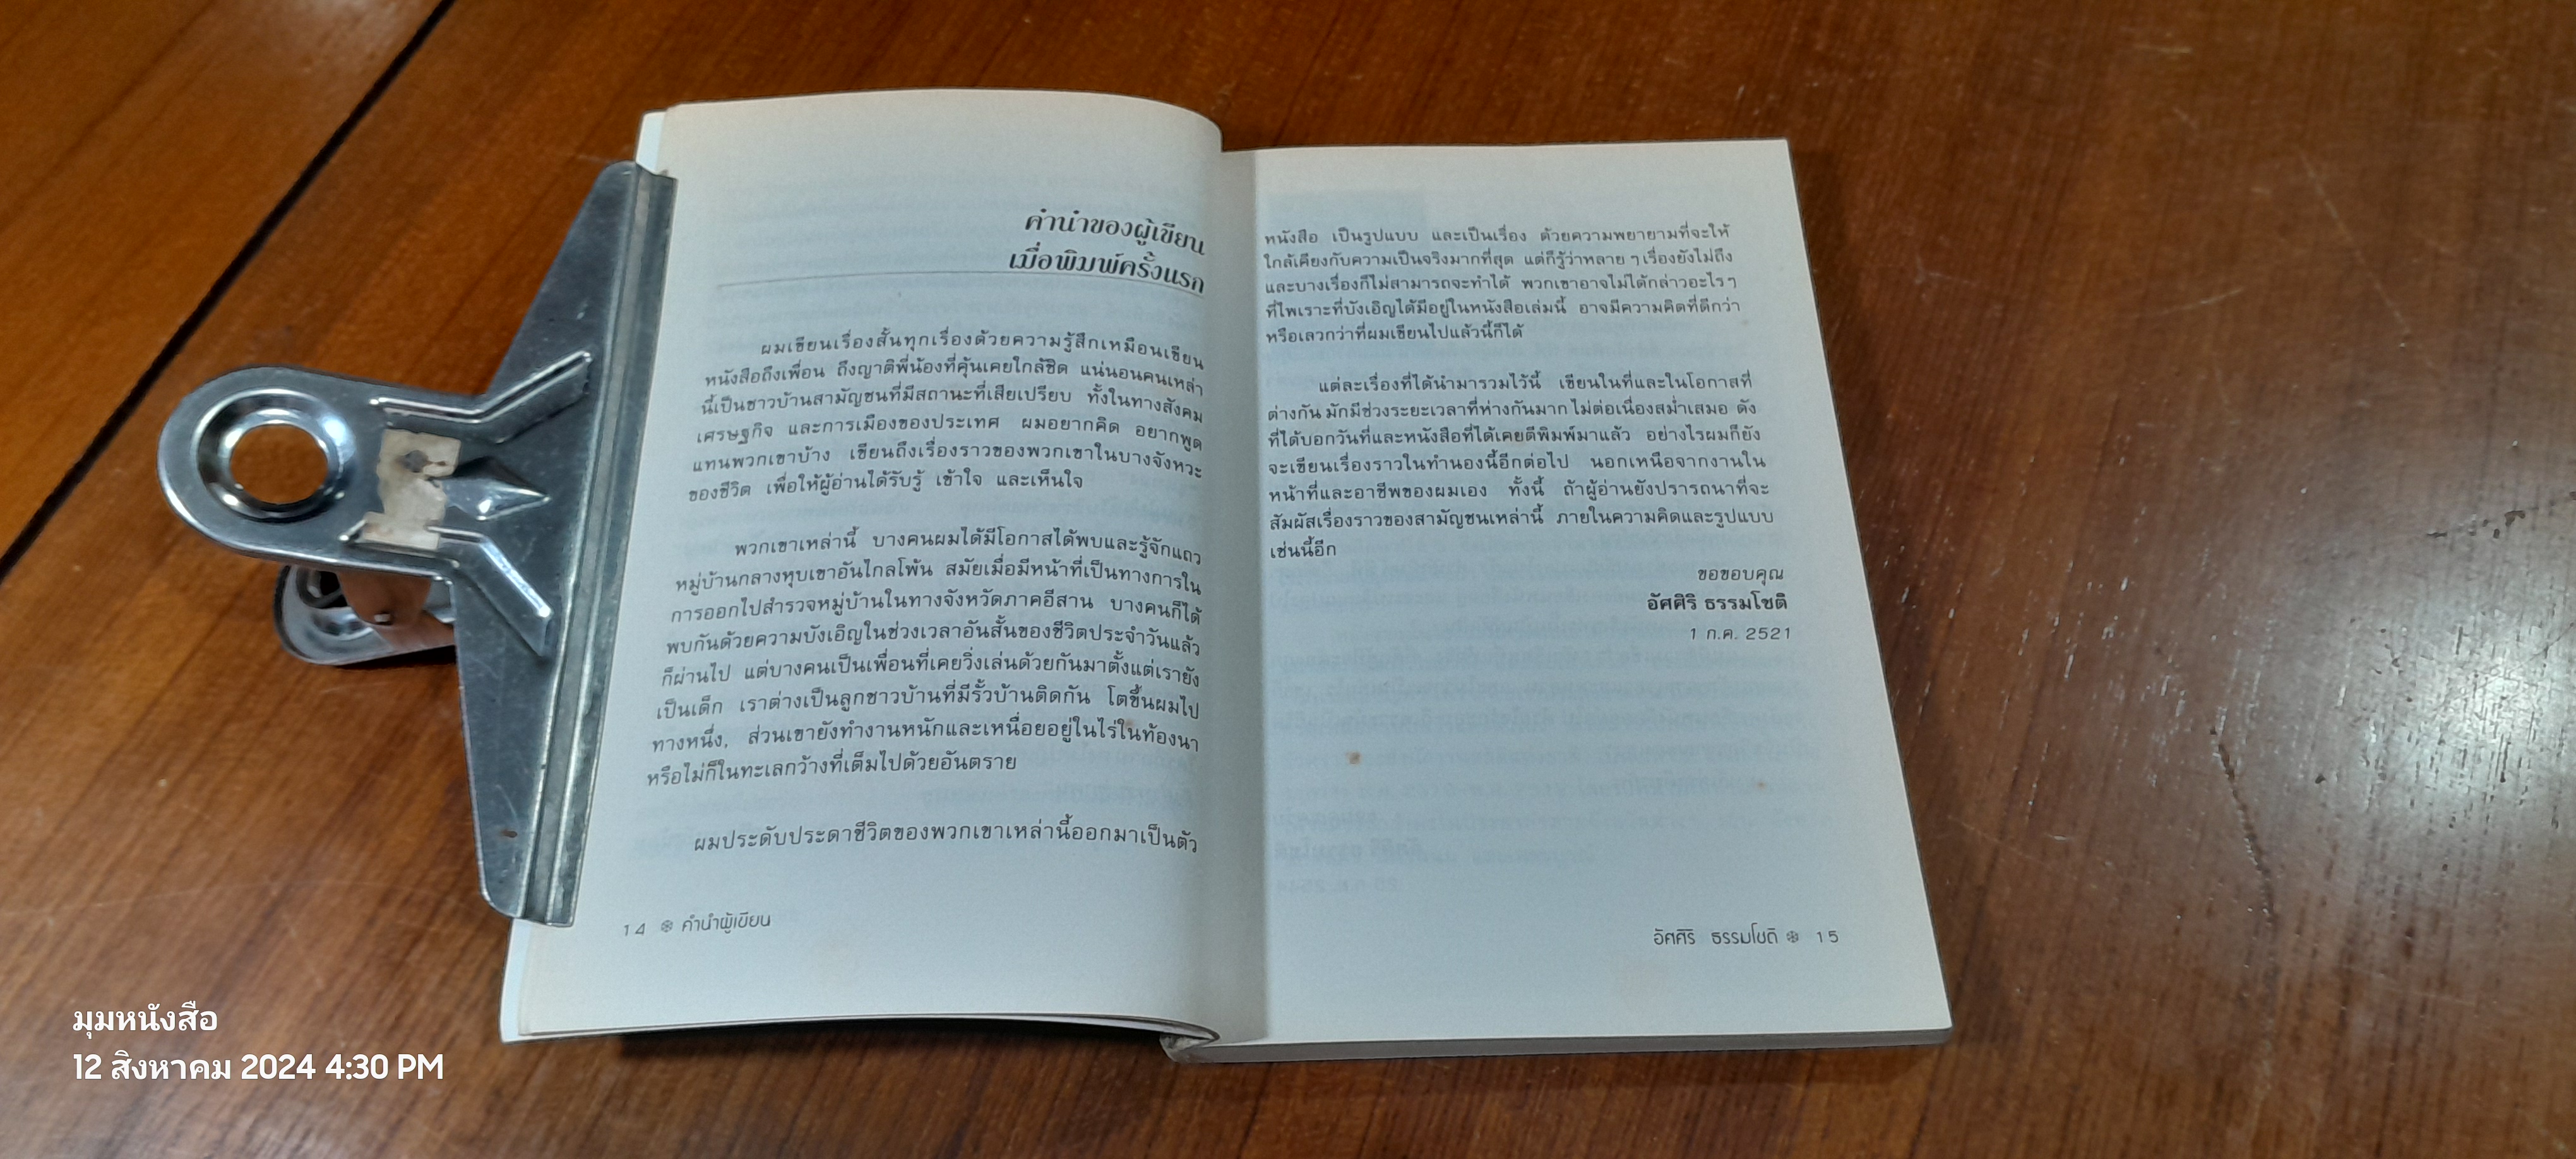 คำนำของผู้เขียน
เมื่อพิมพ์ครั้งแรก
ผมเขียนเรื่องสั้นทุกเรื่องด้วยความรู้สึกเหมือนเขียน
หนังสือถึงเพื่อน ถึงญาติพี่น้องที่คุ้นเคยใกล้ชิด แน่นอนคนเหล่า
นี้เป็นชาวบ้านสามัญชนที่มีสถานะที่เสียเปรียบ ทั้งในทางสังคม
เศรษฐกิจ และการเมืองของประเทศ ผมอยากคิด อยากพูด
แทนพวกเขาบ้าง เขียนถึงเรื่องราวของพวกเขาในบางจังหวะ
ของชีวิต เพื่อให้ผู้อ่านได้รับรู้ เข้าใจ และเห็นใจ
พวกเขาเหล่านี้ บางคนผมได้มีโอกาสได้พบและรู้จักแถว
หมู่บ้านกลางหุบเขาอันไกลโพ้น สมัยเมื่อมีหน้าที่เป็นทางการใน
การออกไปสำรวจหมู่บ้านในทางจังหวัดภาคอีสาน บางคนก็ได้
พบกันด้วยความบังเอิญในช่วงเวลาอันสั้นของชีวิตประจำวันแล้ว
ก็ผ่านไป แต่บางคนเป็นเพื่อนที่เคยวิ่งเล่นด้วยกันมาตั้งแต่เรายัง
เป็นเด็ก เราต่างเป็นลูกชาวบ้านที่มีรั้วบ้านติดกัน โตขึ้นผมไป
ทางหนึ่ง, ส่วนเขายังทำงานหนักและเหนื่อยอยู่ในไร่ในท้องนา
หรือไม่ก็ในทะเลกว้างที่เต็มไปด้วยอันตราย
ผมประดับประดาชีวิตของพวกเขาเหล่านี้ออกมาเป็นตัว
14 ❄ คำนำผู้เขียน
หนังสือ เป็นรูปแบบ และเป็นเรื่อง ด้วยความพยายามที่จะให้
ใกล้เคียงกับความเป็นจริงมากที่สุด แต่ก็รู้ว่าหลาย ๆ เรื่องยังไม่ถึง
และบางเรื่องก็ไม่สามารถจะทำได้ พวกเขาอาจไม่ได้กล่าวอะไร ๆ
ที่ไพเราะที่บังเอิญได้มีอยู่ในหนังสือเล่มนี้ อาจมีความคิดที่ดีกว่า
หรือเลวกว่าที่ผมเขียนไปแล้วนี้ก็ได้
แต่ละเรื่องที่ได้นำมารวมไว้นี้ เขียนในที่และในโอกาสที่
ต่างกัน มักมีช่วงระยะเวลาที่ห่างกันมาก ไม่ต่อเนื่องสม่ำเสมอ ดัง
ที่ได้บอกวันที่และหนังสือที่ได้เคยตีพิมพ์มาแล้ว อย่างไรผมก็ยัง
จะเขียนเรื่องราวในทำนองนี้อีกต่อไป นอกเหนือจากงานใน
หน้าที่และอาชีพของผมเอง ทั้งนี้ ถ้าผู้อ่านยังปรารถนาที่จะ
สัมผัสเรื่องราวของสามัญชนเหล่านี้ ภายในความคิดและรูปแบบ
เช่นนี้อีก
ขอขอบคุณ
อัศศิริ ธรรมโชติ
1 ก.ค. 2521
อัศศิริ ธรรมโชติ ❄ 15
มุมหนังสือ
12 สิงหาคม 2024 4:30 PM